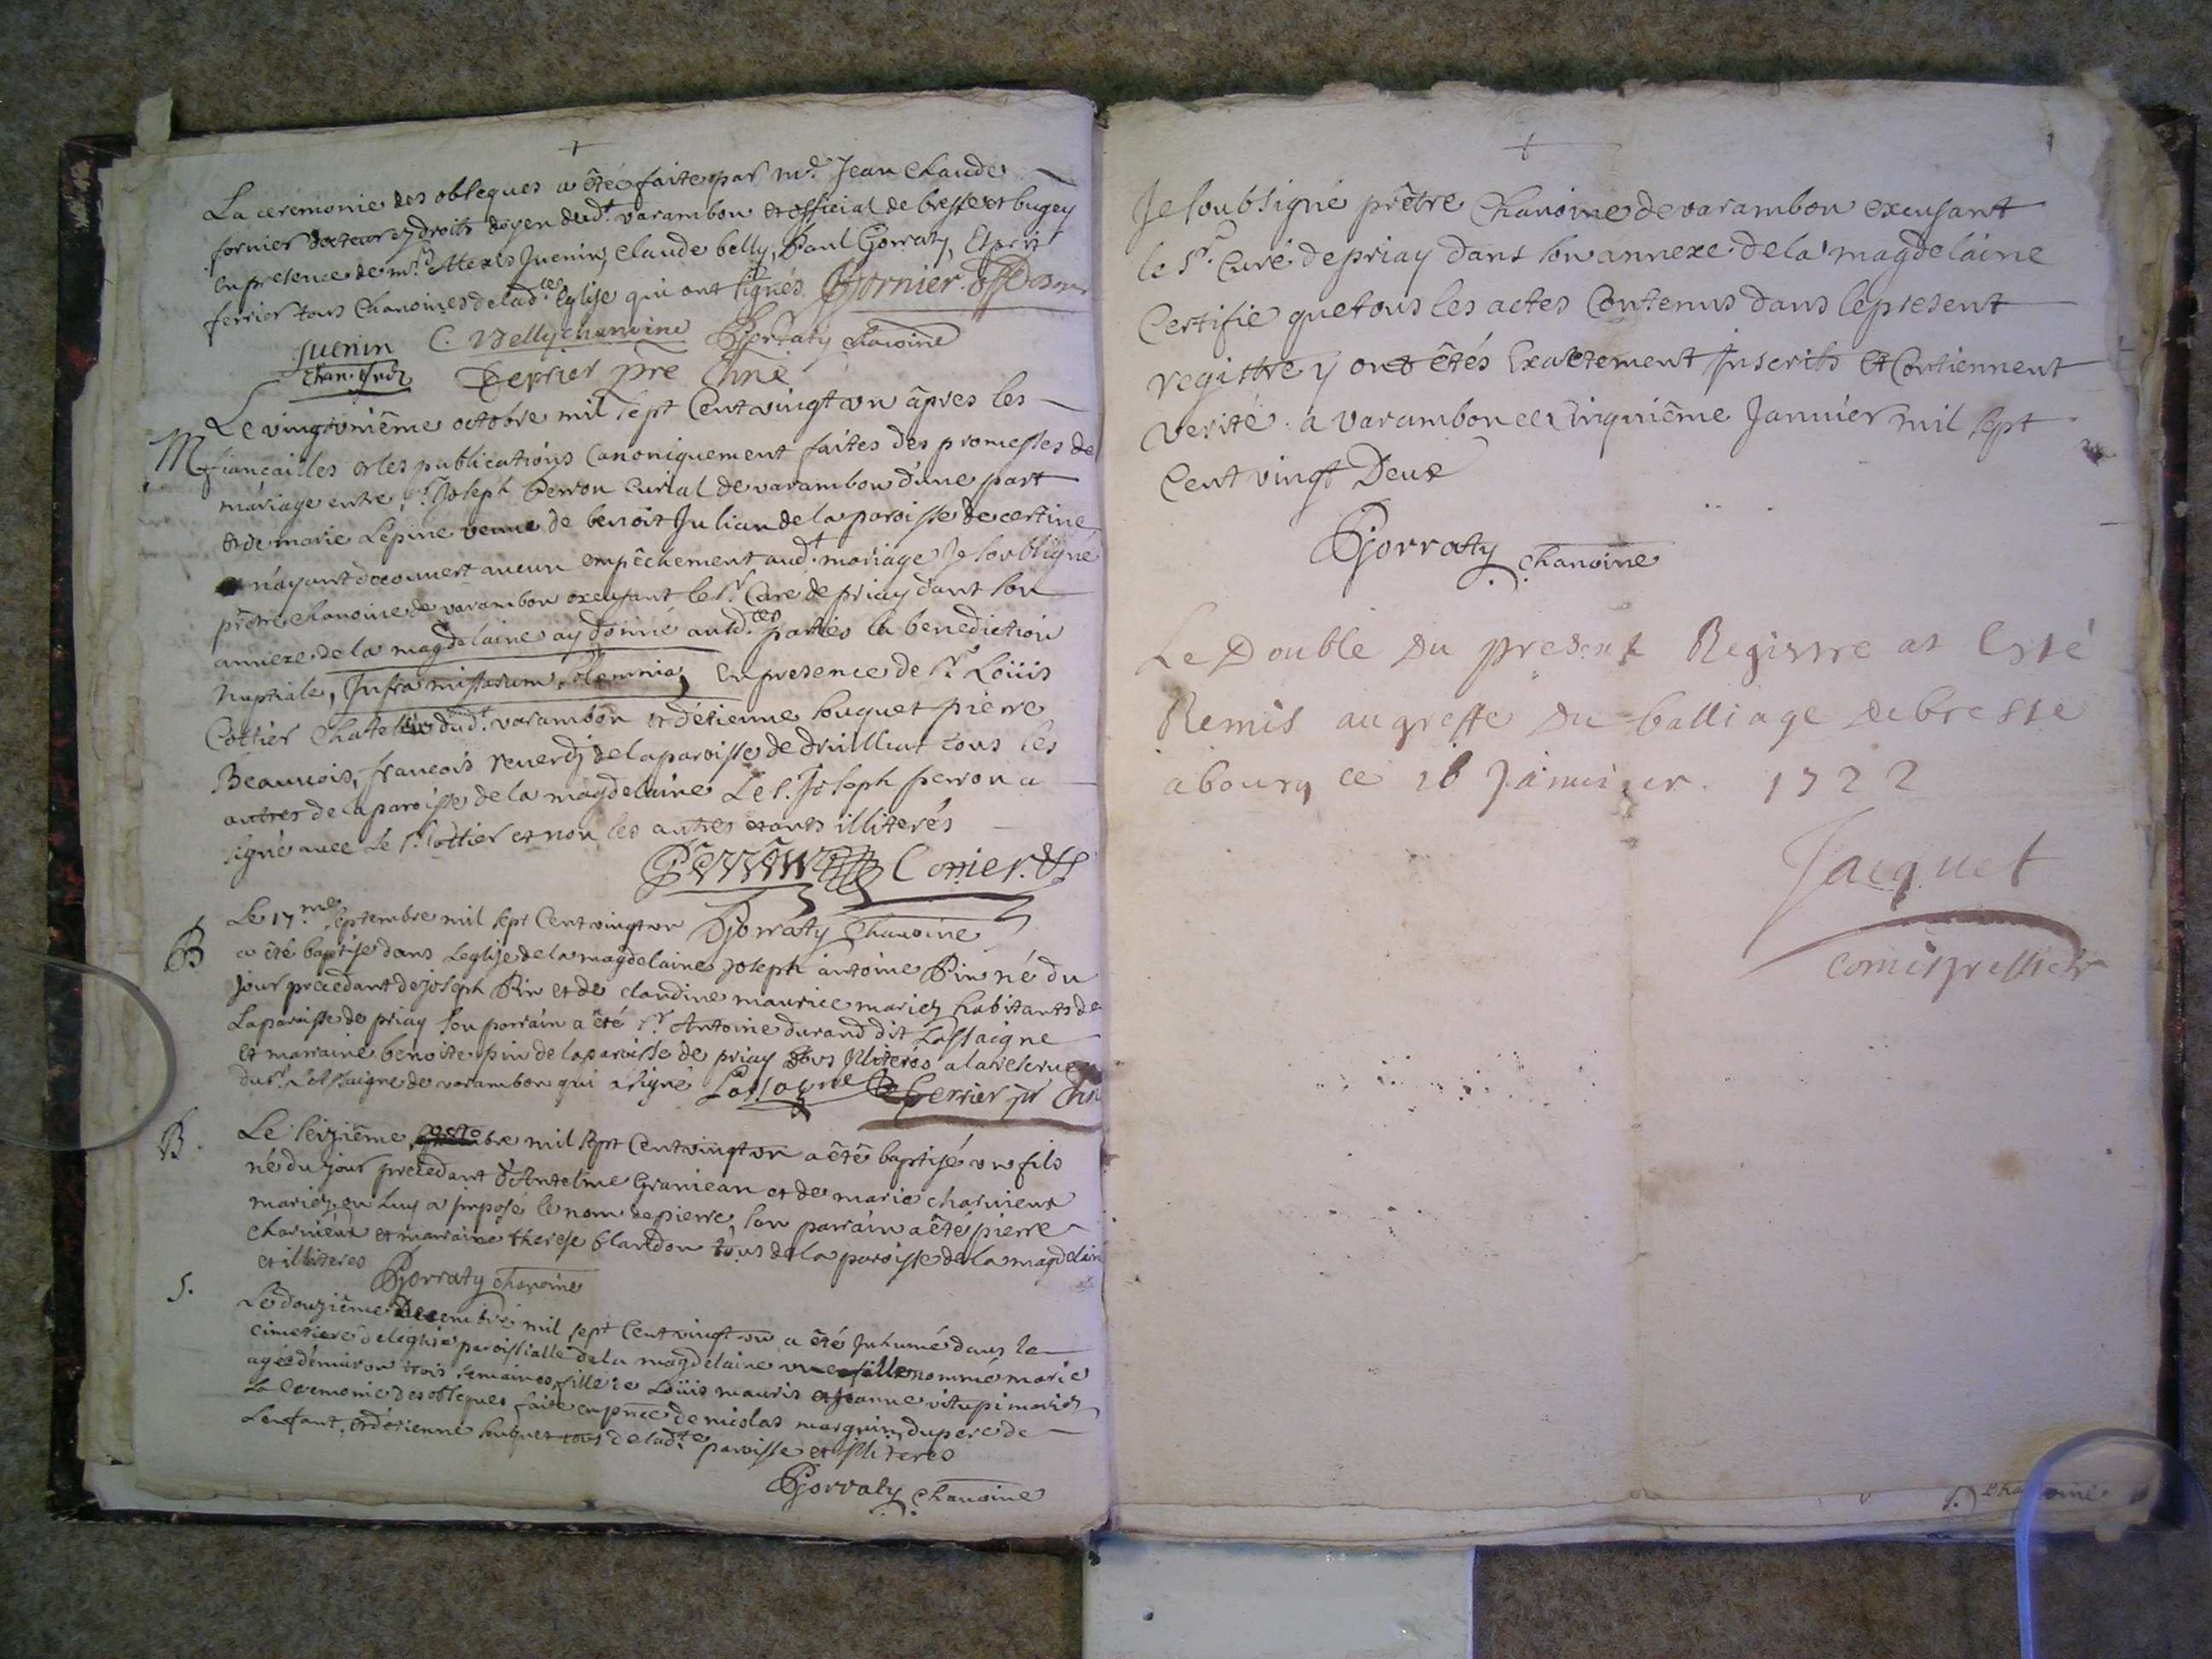 La ceremonie des obseques a êtée faite par mr. Jean Claude
fornier docteur ez droits doyen dudt. varambon et official de bresse et bugey
en presence de mrs. Alexis Juenin, Claude belly, Paul Gorraty, Esprit
ferrier tous Chanoines de ladte. Eglise qui ont signés Fornier off Doyen
Juenin C. Belly chanoine PGorraty chanoine
chan. Ferrier pre Chne
Le vingtunième octobre mil sept Cent vingt un âpres les
M fiançailles et les publications Canoniquement faites des promesses de
mariage entre sr. Joseph Perron Curial de varambon d'une part
et de marie Lépine veuve de benoit Julian de la paroisse de certine
n'ayant decouvert aucun empêchement audt. mariage Je soubsigné
prêtre chanoine de varambon exerçant le sr. Curé de priay dans son
annexe de la magdelaine ay donné auxdtes. parties la benediction
Nuptiale, Infra missarum solemnia, en presence de sr. Loüis
Cottier Chatelain dudt. varambon et d'étienne bouquet pierre
Beauvois, francois reverdj de la paroisse de druillat tous les
autres de la paroisse de la magdelaine Le s. Joseph perron a
signé avec le sr. Cottier et non les autres etants illiterés
Perron Cottier
Le 17me. septembre mil sept Cent vingt un PGorraty Chanoine
B a été baptisé dans Leglise de la magdelaine joseph antoine Pin né du
jour precedant de joseph Pin et de claudine maurice mariez habitants de
la paroisse de priay son parrain a êté sr. Antoine durand dit Lassaigne
et marraine benoite pin de la paroisse de priay tous illiterés a la reserve
du sr. Lassaigne de varambon qui a signé Lassaigne ferrier pr Chn
B. Le seizième octobre mil sept Cent vingt un a êtê baptisé un fils
né du jour precedant d'Antelme Granjean et de marie charvieux
mariez, on Luy a imposé le nom de pierre, son parrain a êté pierre
charvieux et marraine therese blandon tous de la paroisse de la magdelaine
et illiteres PGorraty chanoine
S. Le douzième Decembre mil sept Cent vingt un a été Inhumé dans le
cimetiere de leglise paroissialle de la magdelaine une fille nommé marie
agée d'environ trois semaines, fille de Loüis mauris et Jeanne vitupi mariez
La Ceremonie des obseques faite en pnce de nicolas marguin, du pere de
Lenfant, et d'etienne bouquet tous de ladte. paroisse et illiteres
PGorraty chanoine
Je soubsigné prêtre Chanoine de varambon exerçant
le Sr. Curé de priay dans son annexe de la magdelaine
Certifie que tous les actes Contenus dans le present
registre y ont êtés Exactement Inscrits et Contiennent
verité. a varambon ce Cinquième Janvier mil sept
Cent vingt Deux
PGorraty chanoine
Le Double Du present Registre at Esté
Remis au greffe Du balliage de bresse
a bourg ce 16 Janvier. 1722
Jacquet
comis greffier